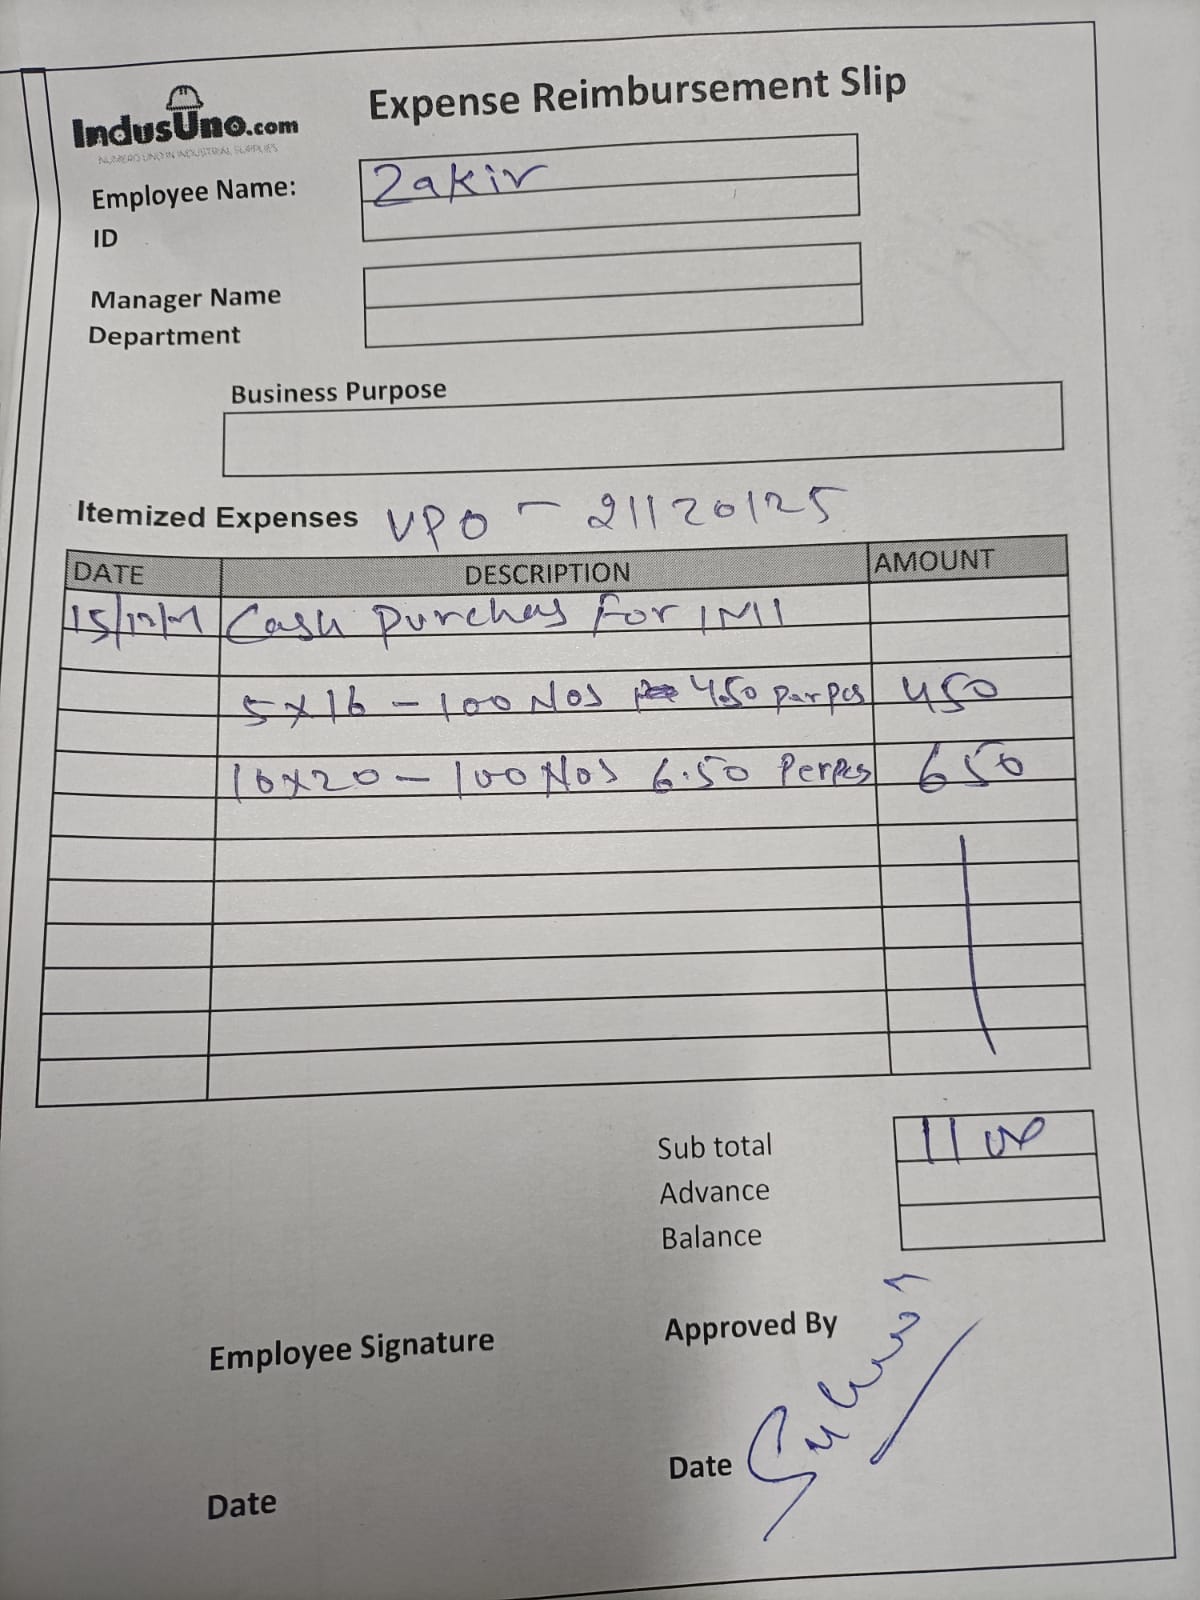 Expense Reimbursement Slip
IndusUno.com
NUMERO UNO IN INDUSTRIAL SUPPLIES
Employee Name: Zakir
ID
Manager Name
Department
Business Purpose
Itemized Expenses VPO - 21120125
DATE DESCRIPTION AMOUNT
15/12/21 Cash Purchas For IMI
5x16 - 100 Nos 4.50 per pcs 450
10x20 - 100 Nos 6.50 Perpcs 650
Sub total 1100
Advance
Balance
Employee Signature Approved By
Date
Date